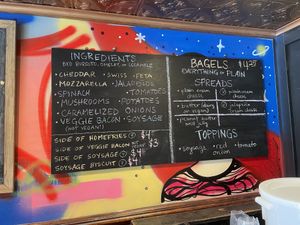 INGREDIENTS
BYO BURRITO, OMELET, OR SCRAMBLE
• CHEDDAR • SWISS • FETA
• MOZZARELLA • JALAPEÑOS
SPINACH • TOMATOES
• MUSHROOMS • POTATOES
CARAMELIZED ONIONS
VEGGIE BACON • SOYSAGE
(NOT VEGAN!)
SIDE OF HOMEFRIES $4
SIDE OF VEGGIE BACON $3
SIDE OF SOYSAGE $4
SOYSAGE BISCUIT
BAGELS
EVERYTHING or PLAIN
SPREADS
plain cream cheese
butter
jalapeño
peanut butter and jelly
TOPPINGS
• soysage • red onion • tomato